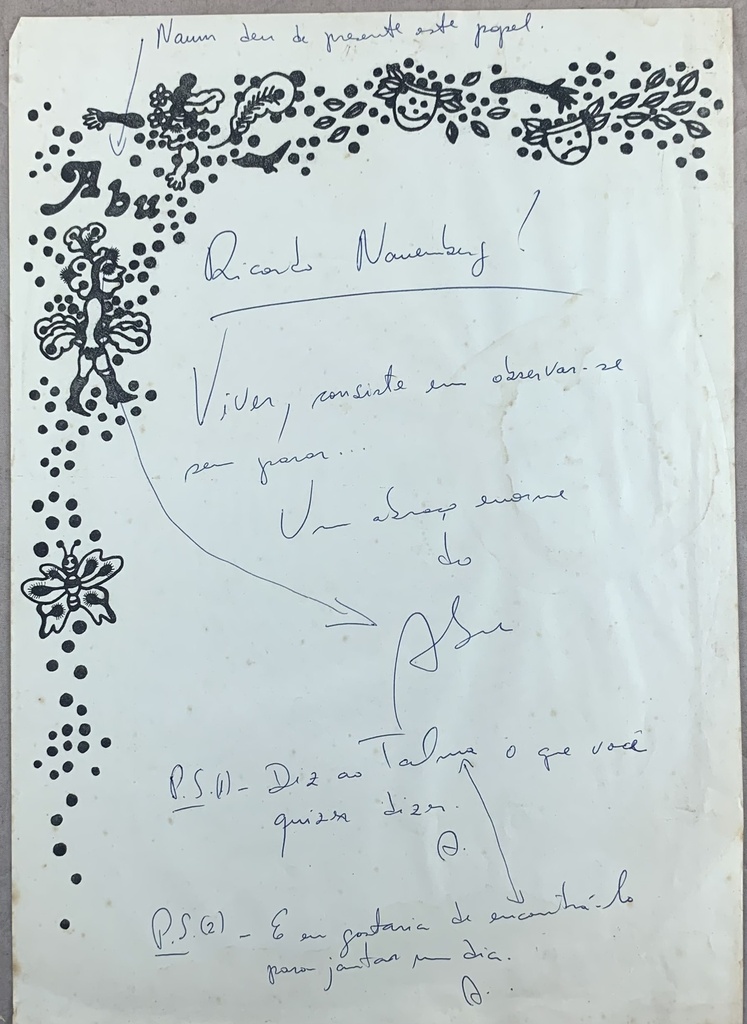 Naum deu de presente este papel.
Abu
Ricardo Nauenberg!
Viver, consiste em observar-se
sem parar...
Um abraço enorme
do
Abu
P.S.(1) - Diz ao Talma o que você
quizer dizer.
A.
P.S.(2) - E eu gostaria de encontrá-lo
para jantar um dia.
A.